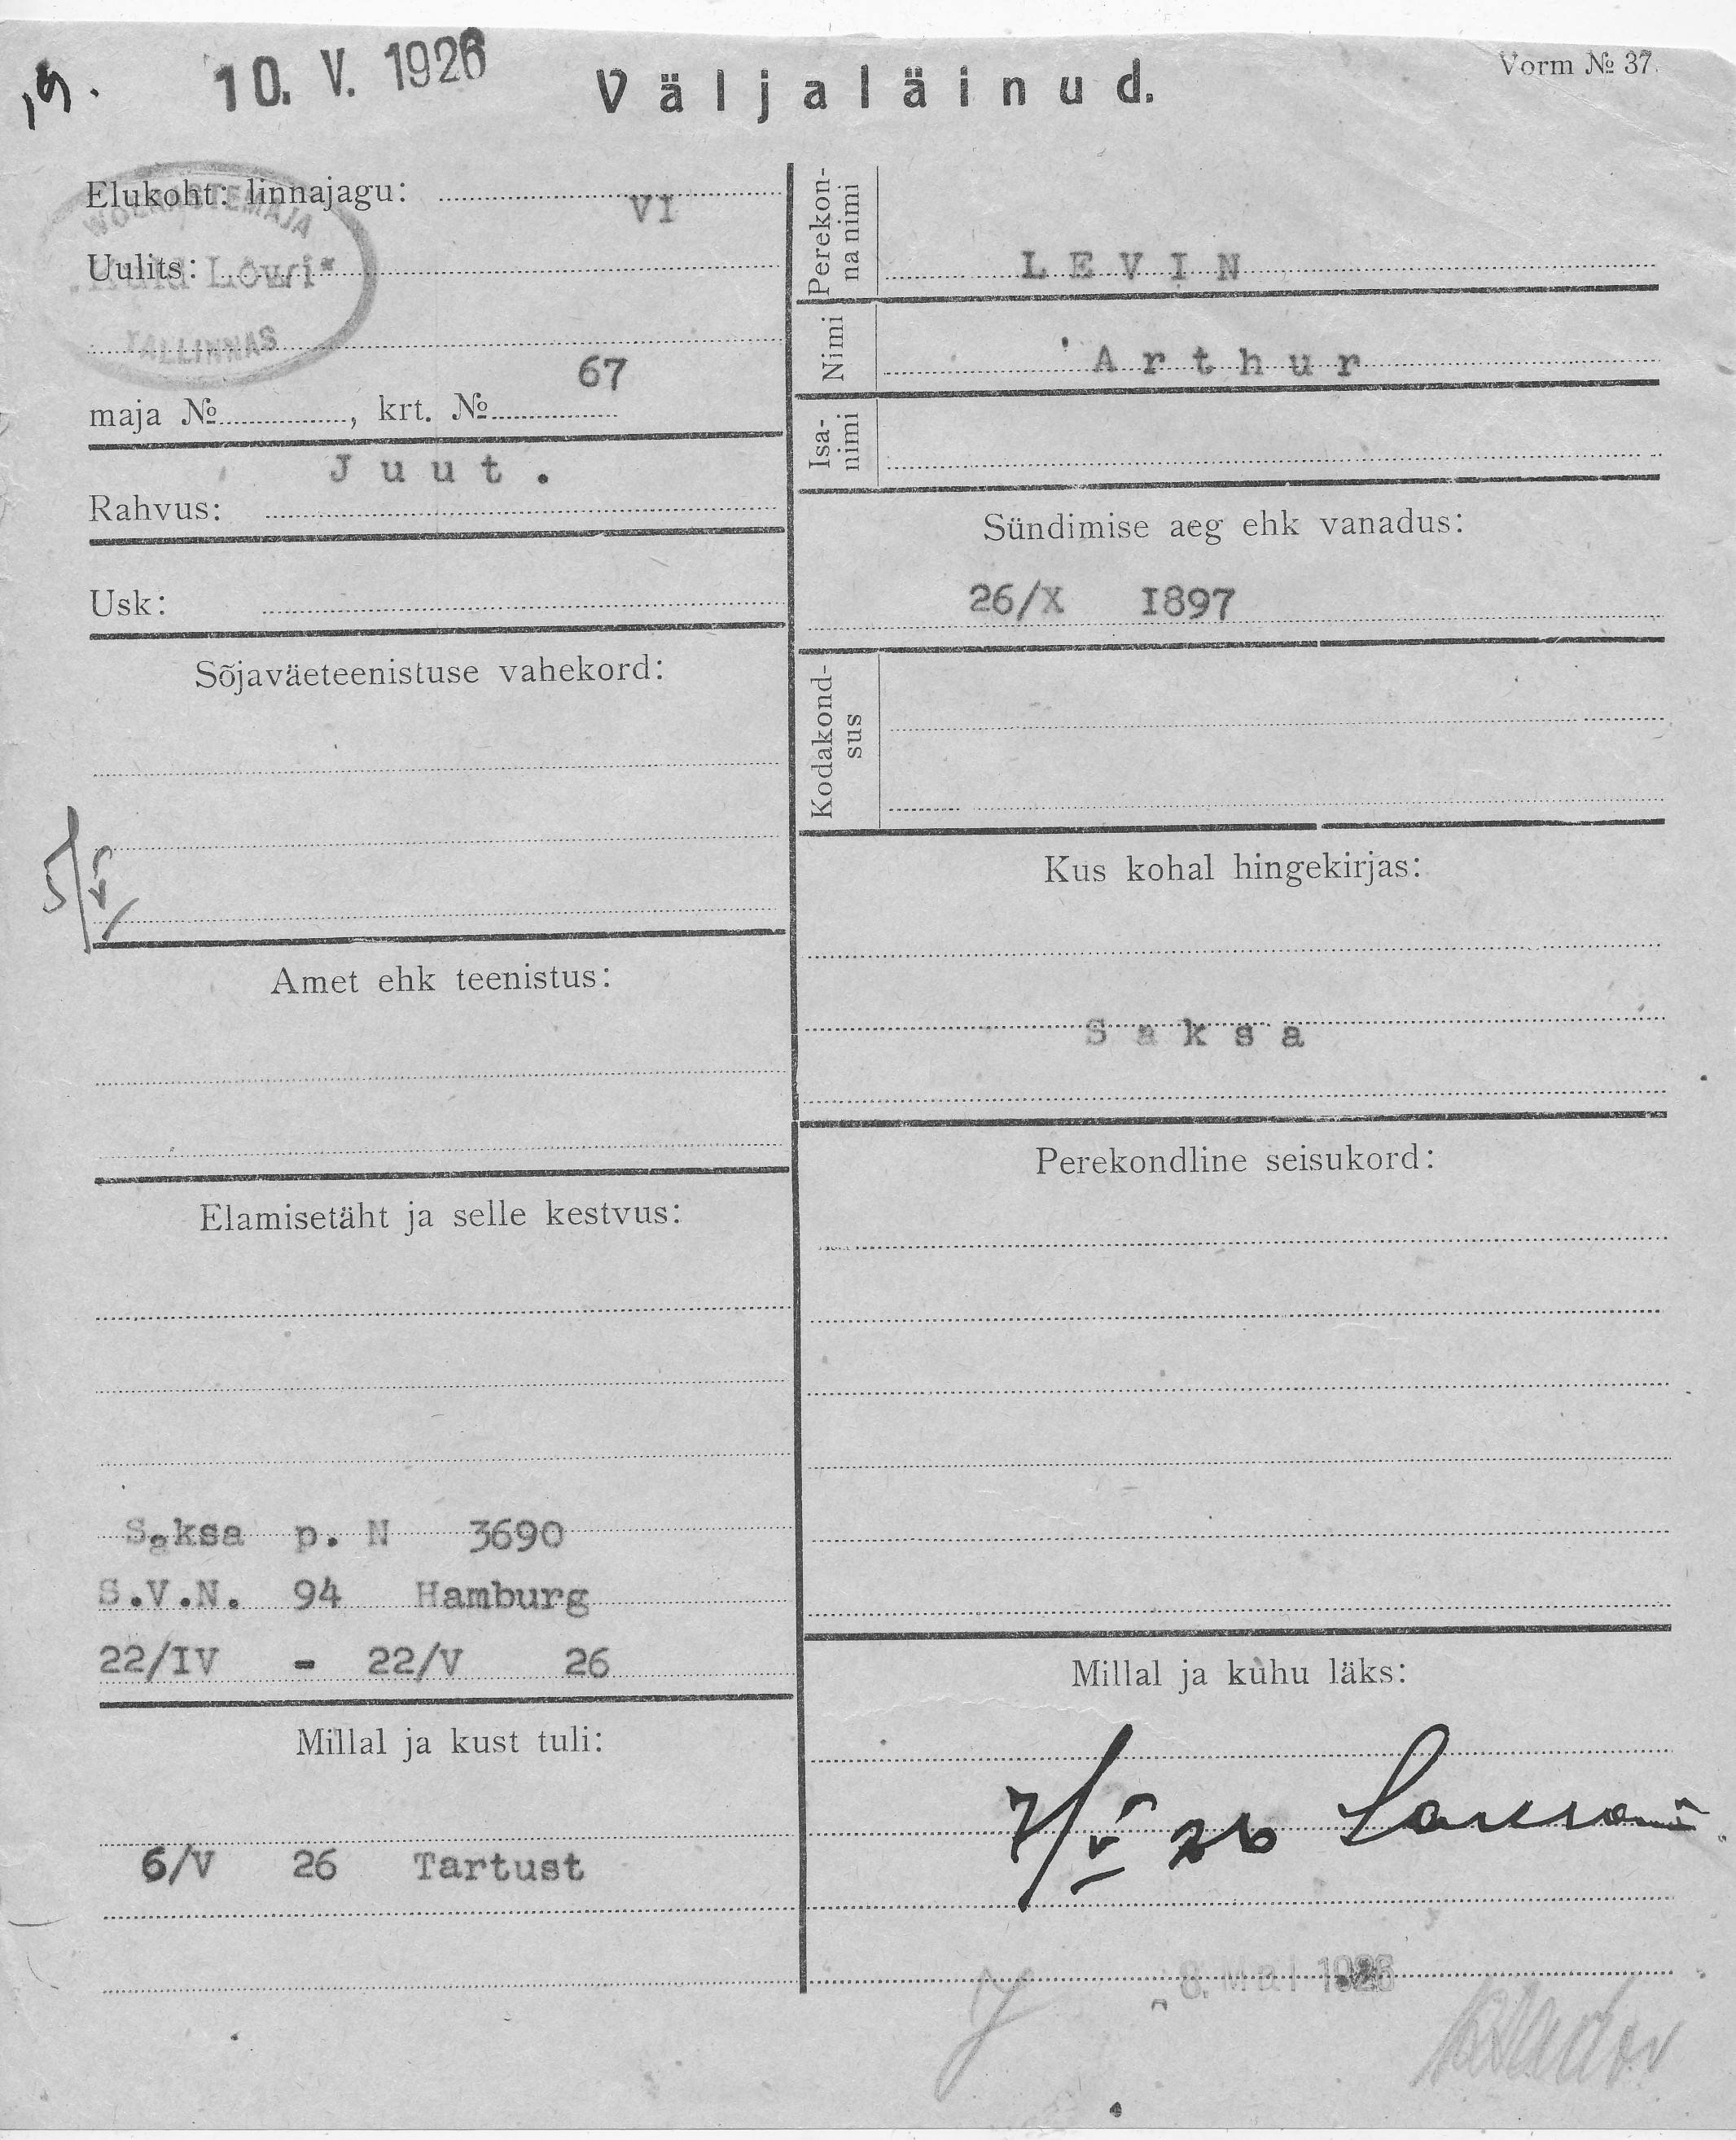 10. V. 1926
Väljaläinud.
Vorm № 37.
Elukoht: linnajagu: VI
Uulits:
WOERASTEMAJA
"Kuld Lõwi"
TALLINNAS
maja № , krt. № 67
Juut.
Rahvus:
Usk:
Sõjaväeteenistuse vahekord:
5/V
Amet ehk teenistus:
Elamisetäht ja selle kestvus:
Saksa p. N 3690
S.V.N. 94 Hamburg
22/IV - 22/V 26
Millal ja kust tuli:
6/V 26 Tartust
Perekon-
na nimi
LEVIN
Nimi
Arthur
Isa-
nimi
Sündimise aeg ehk vanadus:
26/X I897
Kodakond-
sus
Kus kohal hingekirjas:
Saksa
Perekondline seisukord:
Millal ja kuhu läks:
7/V 26
8. Mai 1926